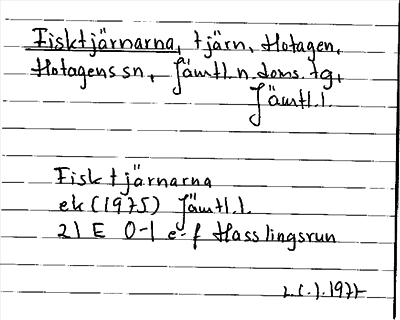 Fisktjärnarna, tjärn, Hotagen,
Hotagens sn, Jämtl. n. doms. tg,
Jämtl. l.
Fisktjärnarna
ek (1975) Jämtl. l.
21 E 0-1 e-f Hasslingsrun